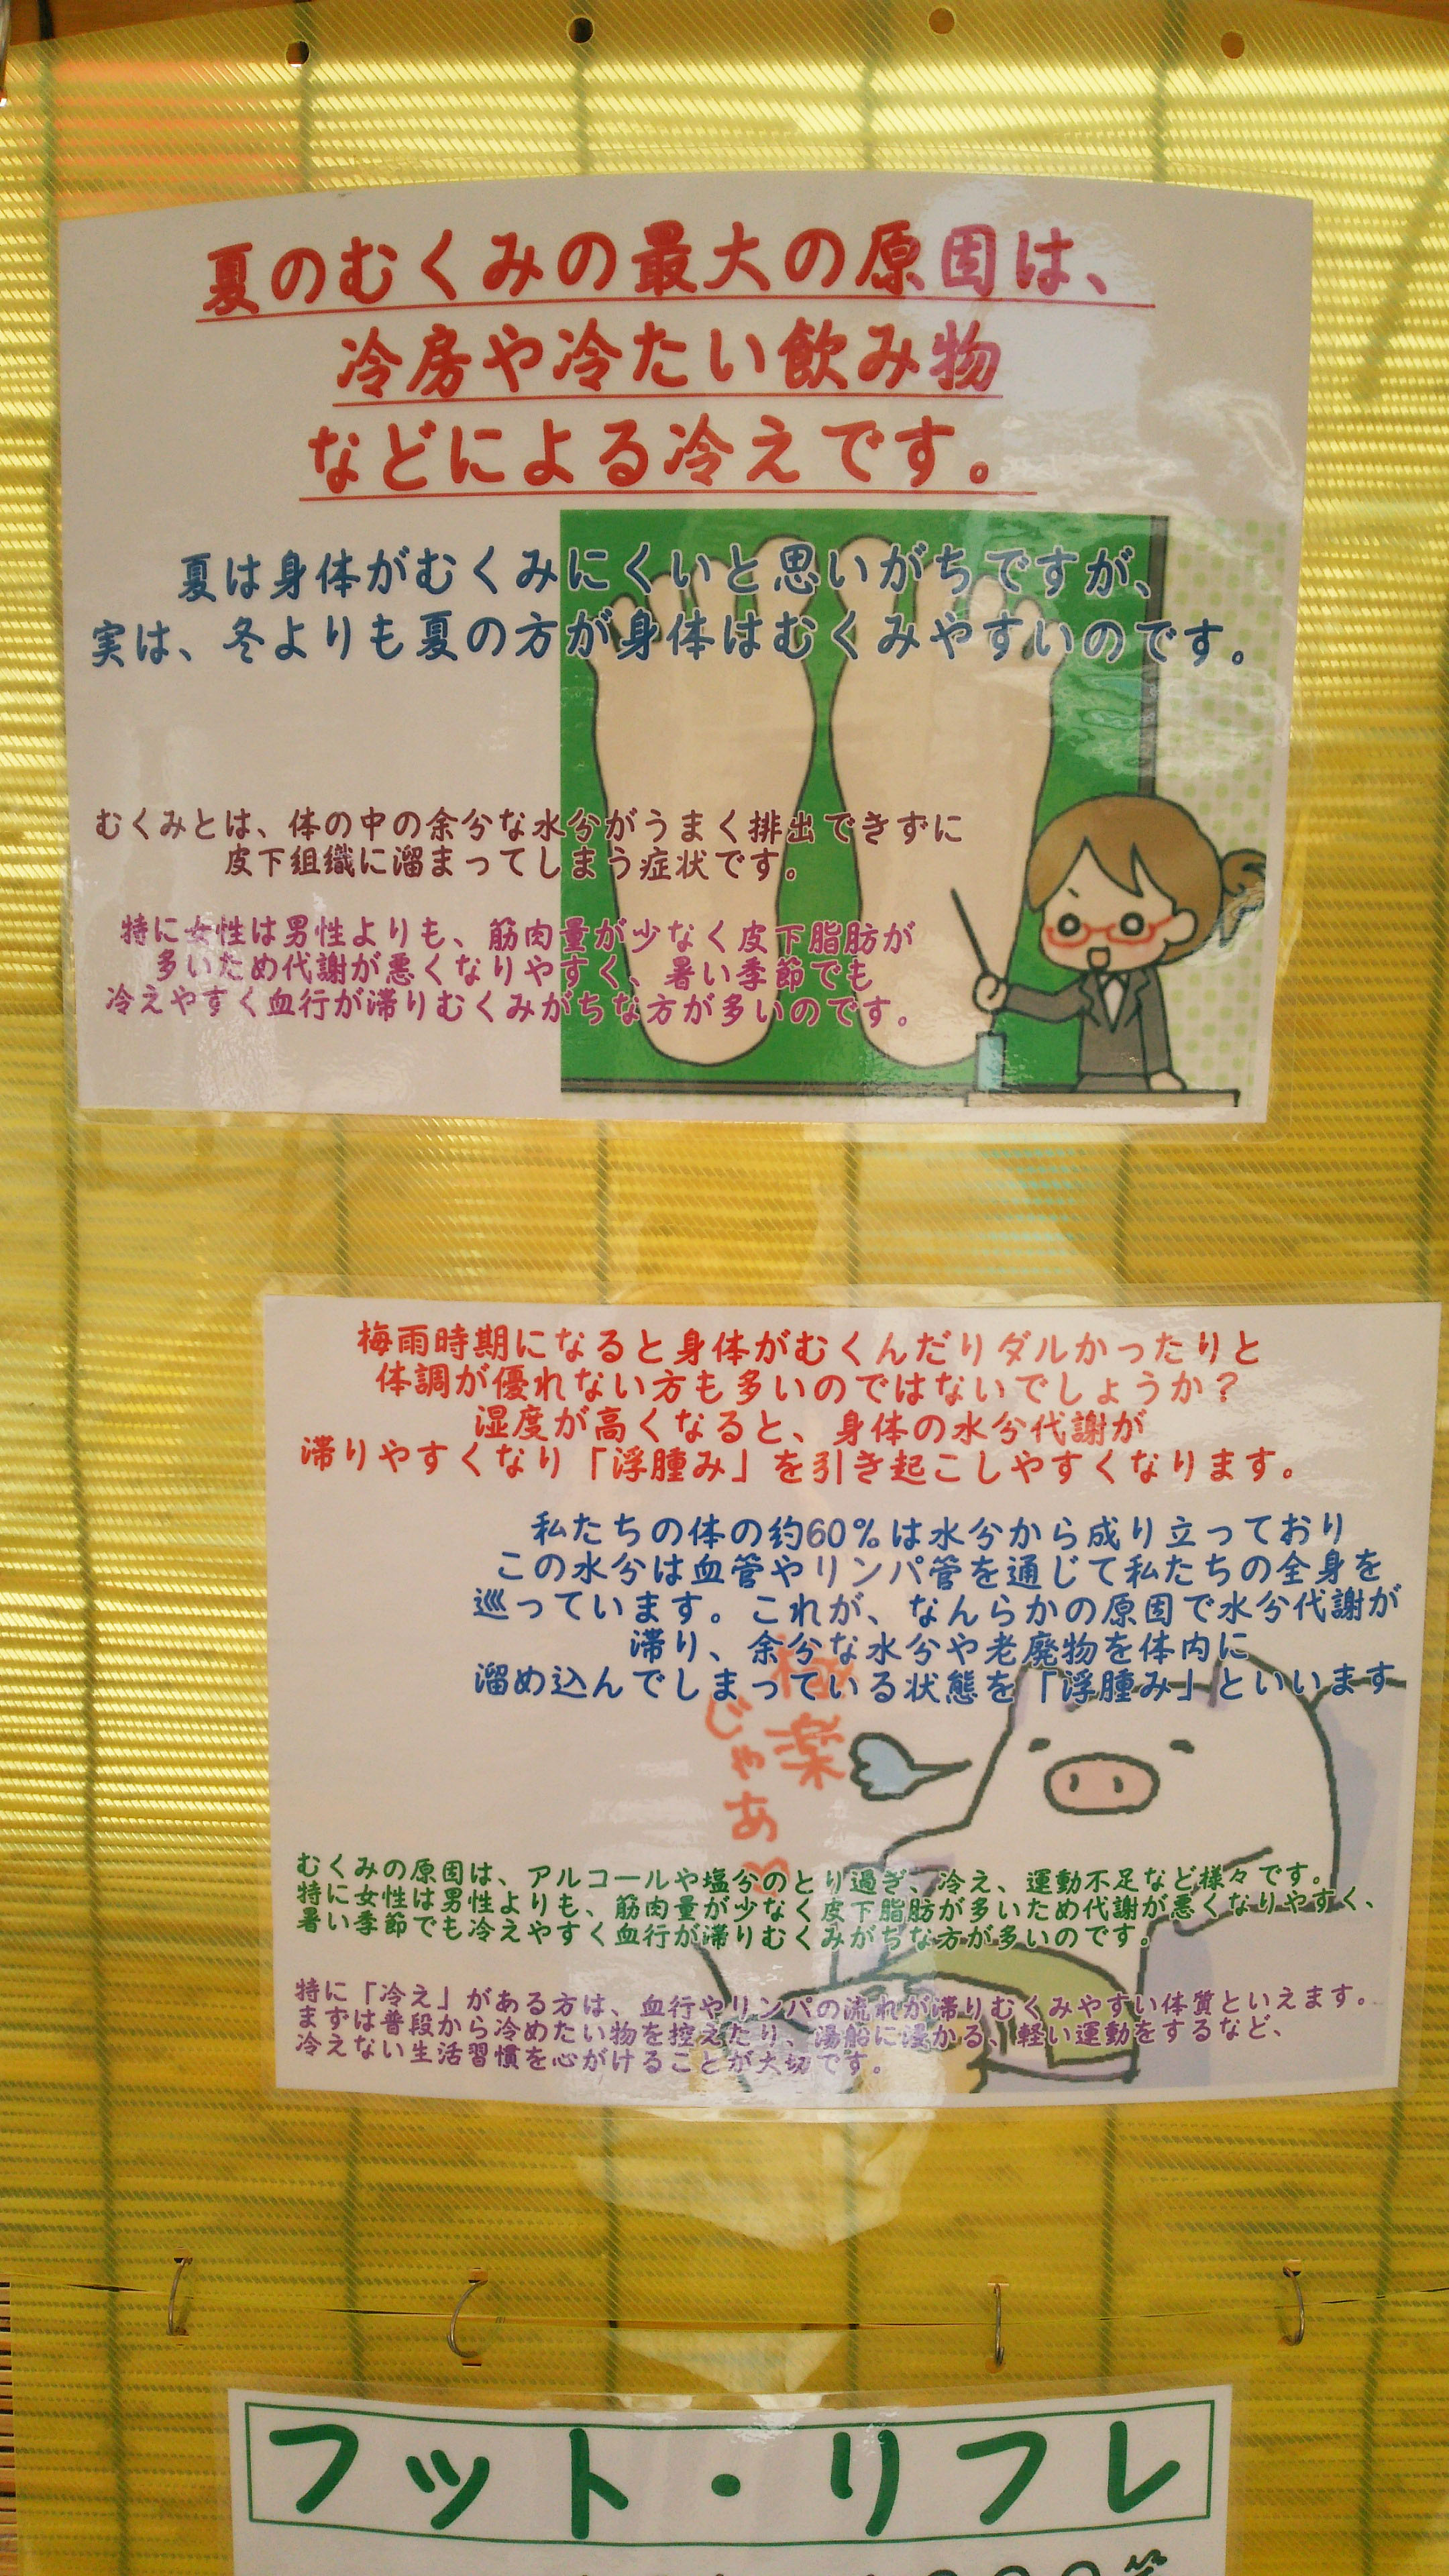 夏のむくみの最大の原因は、
冷房や冷たい飲み物
などによる冷えです。
夏は身体がむくみにくいと思いがちですが、
実は、冬よりも夏の方が身体はむくみやすいのです。
むくみとは、体の中の余分な水分がうまく排出できずに
皮下組織に溜まってしまう症状です。
特に女性は男性よりも、筋肉量が少なく皮下脂肪が
多いため代謝が悪くなりやすく、暑い季節でも
冷えやすく血行が滞りむくみがちな方が多いのです。
梅雨時期になると身体がむくんだりダルかったりと
体調が優れない方も多いのではないでしょうか?
湿度が高くなると、身体の水分代謝が
滞りやすくなり「浮腫み」を引き起こしやすくなります。
私たちの体の約60%は水分から成り立っており
この水分は血管やリンパ管を通じて私たちの全身を
巡っています。これが、なんらかの原因で水分代謝が
滞り、余分な水分や老廃物を体内に
溜め込んでしまっている状態を「浮腫み」といいます
極楽
じゃあ♡
むくみの原因は、アルコールや塩分のとり過ぎ、冷え、運動不足など様々です。
特に女性は男性よりも、筋肉量が少なく皮下脂肪が多いため代謝が悪くなりやすく、
暑い季節でも冷えやすく血行が滞りむくみがちな方が多いのです。
特に「冷え」がある方は、血行やリンパの流れが滞りむくみやすい体質といえます。
まずは普段から冷めたい物を控えたり、湯船に浸かる、軽い運動をするなど、
冷えない生活習慣を心がけることが大切です。
フット・リフレ